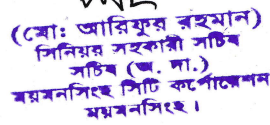 (মো: আরিফুর রহমান)
সিনিয়র সহকারী সচিব
সচিব (অ. দা.)
ময়মনসিংহ সিটি কর্পোরেশন
ময়মনসিংহ।